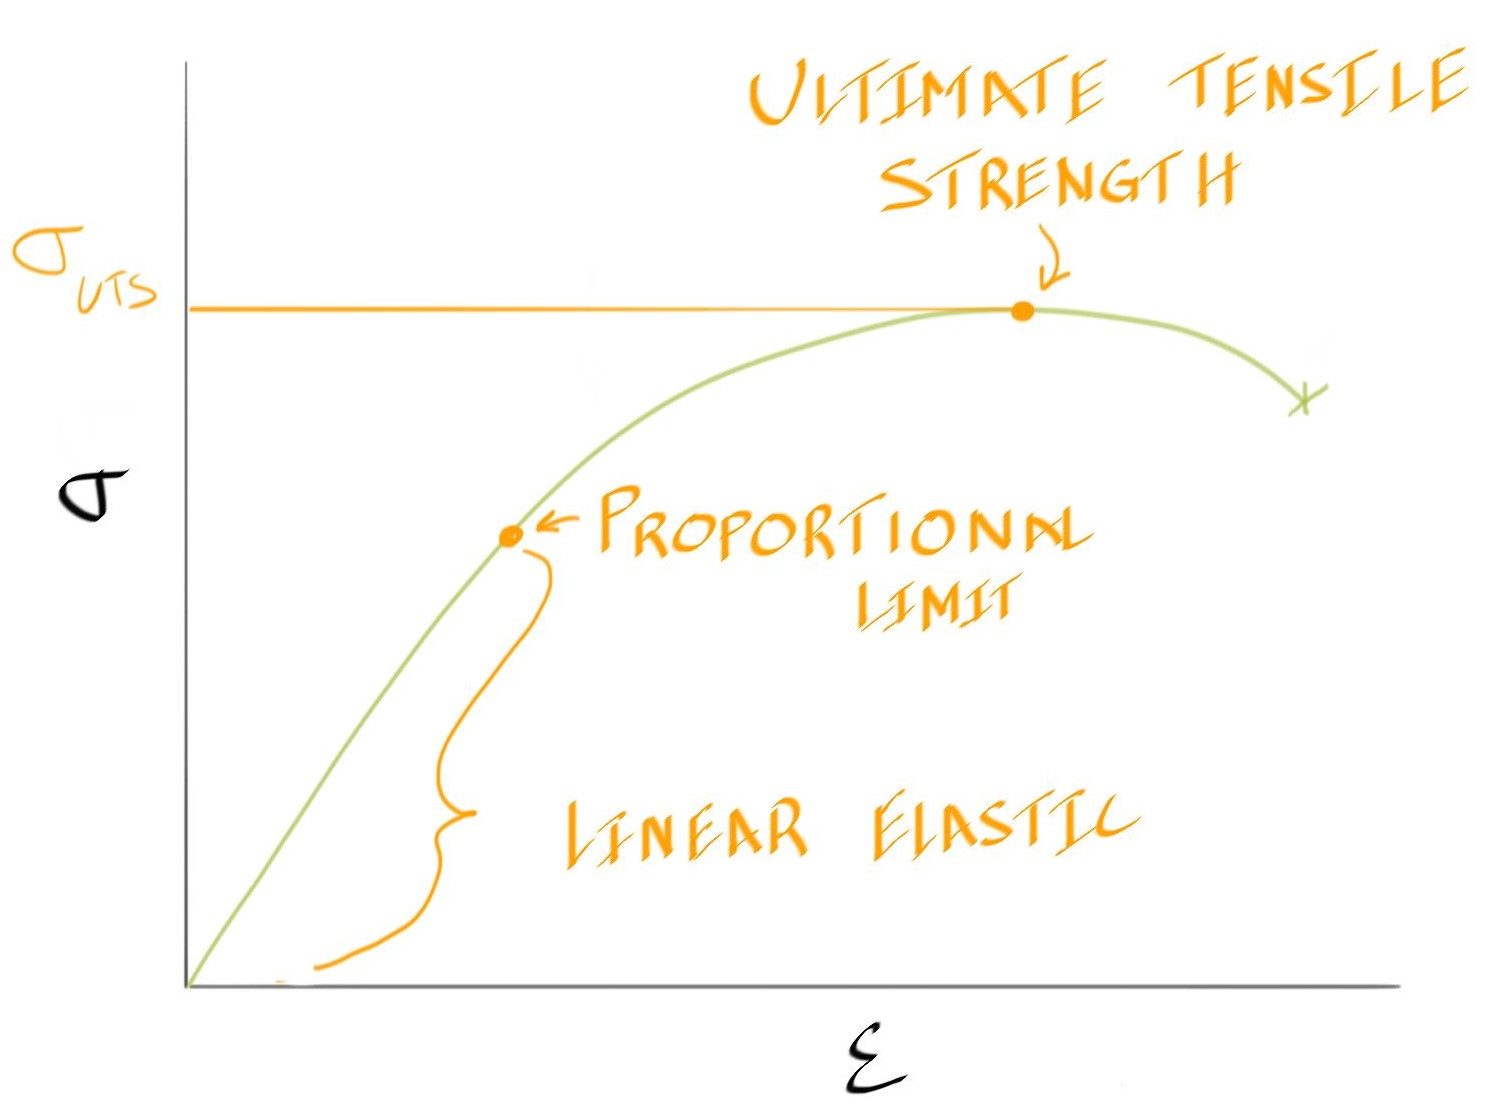 ULTIMATE TENSILE
STRENGTH
σ UTS
σ
PROPORTIONAL
LIMIT
LINEAR ELASTIC
ε